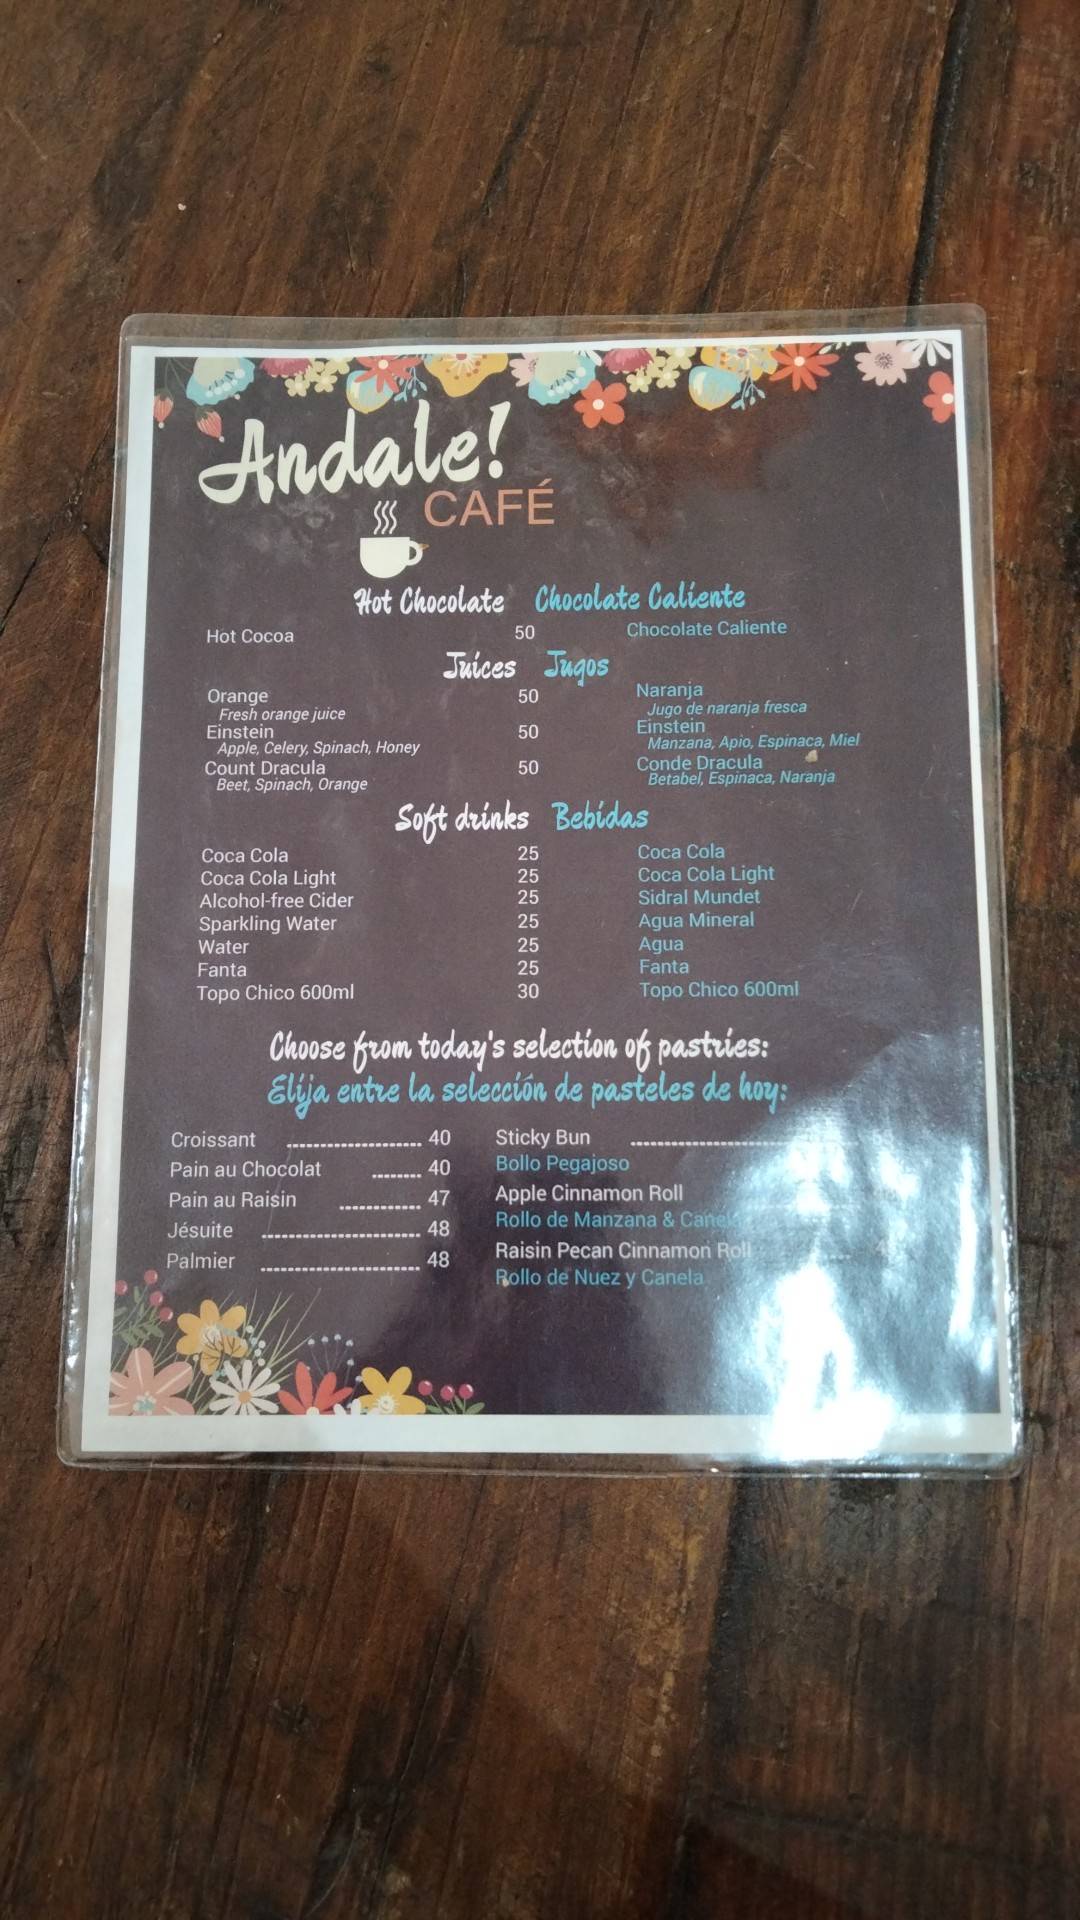 Andale!
CAFÉ
Hot Chocolate Chocolate Caliente
Hot Cocoa 50 Chocolate Caliente
Juices Jugos
Orange 50 Naranja
Fresh orange juice Jugo de naranja fresca
Einstein 50 Einstein
Apple, Celery, Spinach, Honey Manzana, Apio, Espinaca, Miel
Count Dracula 50 Conde Dracula
Beet, Spinach, Orange Betabel, Espinaca, Naranja
Soft drinks Bebidas
Coca Cola 25 Coca Cola
Coca Cola Light 25 Coca Cola Light
Alcohol-free Cider 25 Sidral Mundet
Sparkling Water 25 Agua Mineral
Water 25 Agua
Fanta 25 Fanta
Topo Chico 600ml 30 Topo Chico 600ml
Choose from today's selection of pastries:
Elija entre la selección de pasteles de hoy:
Croissant .................... 40 Sticky Bun
Pain au Chocolat ....... 40 Bollo Pegajoso
Pain au Raisin ............ 47 Apple Cinnamon Roll
Jésuite ........................ 48 Rollo de Manzana & Canela
Palmier ........................ 48 Raisin Pecan Cinnamon Roll
Rollo de Nuez y Canela